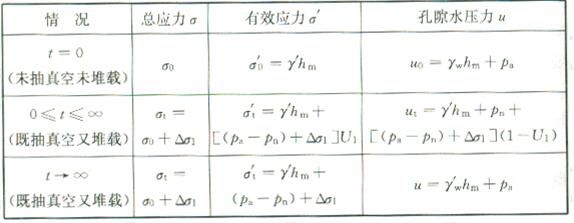 情 况 总应力 σ 有效应力 σ′ 孔隙水压力 u
t = 0
(未抽真空未堆载) σ₀ σ′₀ = γ′hₘ u₀ = γ_w hₘ + pₐ
0 ≤ t ≤ ∞
(既抽真空又堆载) σₜ =
σ₀ + Δσ₁ σ′ₜ = γ′hₘ +
[(pₐ − pₙ) + Δσ₁]U₁ uₜ = γ′hₘ + pₙ +
[(pₐ − pₙ) + Δσ₁](1 − U₁)
t → ∞
(既抽真空又堆载) σₜ =
σ₀ + Δσ₁ σ′ₜ = γ′hₘ +
(pₐ − pₙ) + Δσ₁ u = γ′_w hₘ + pₐ